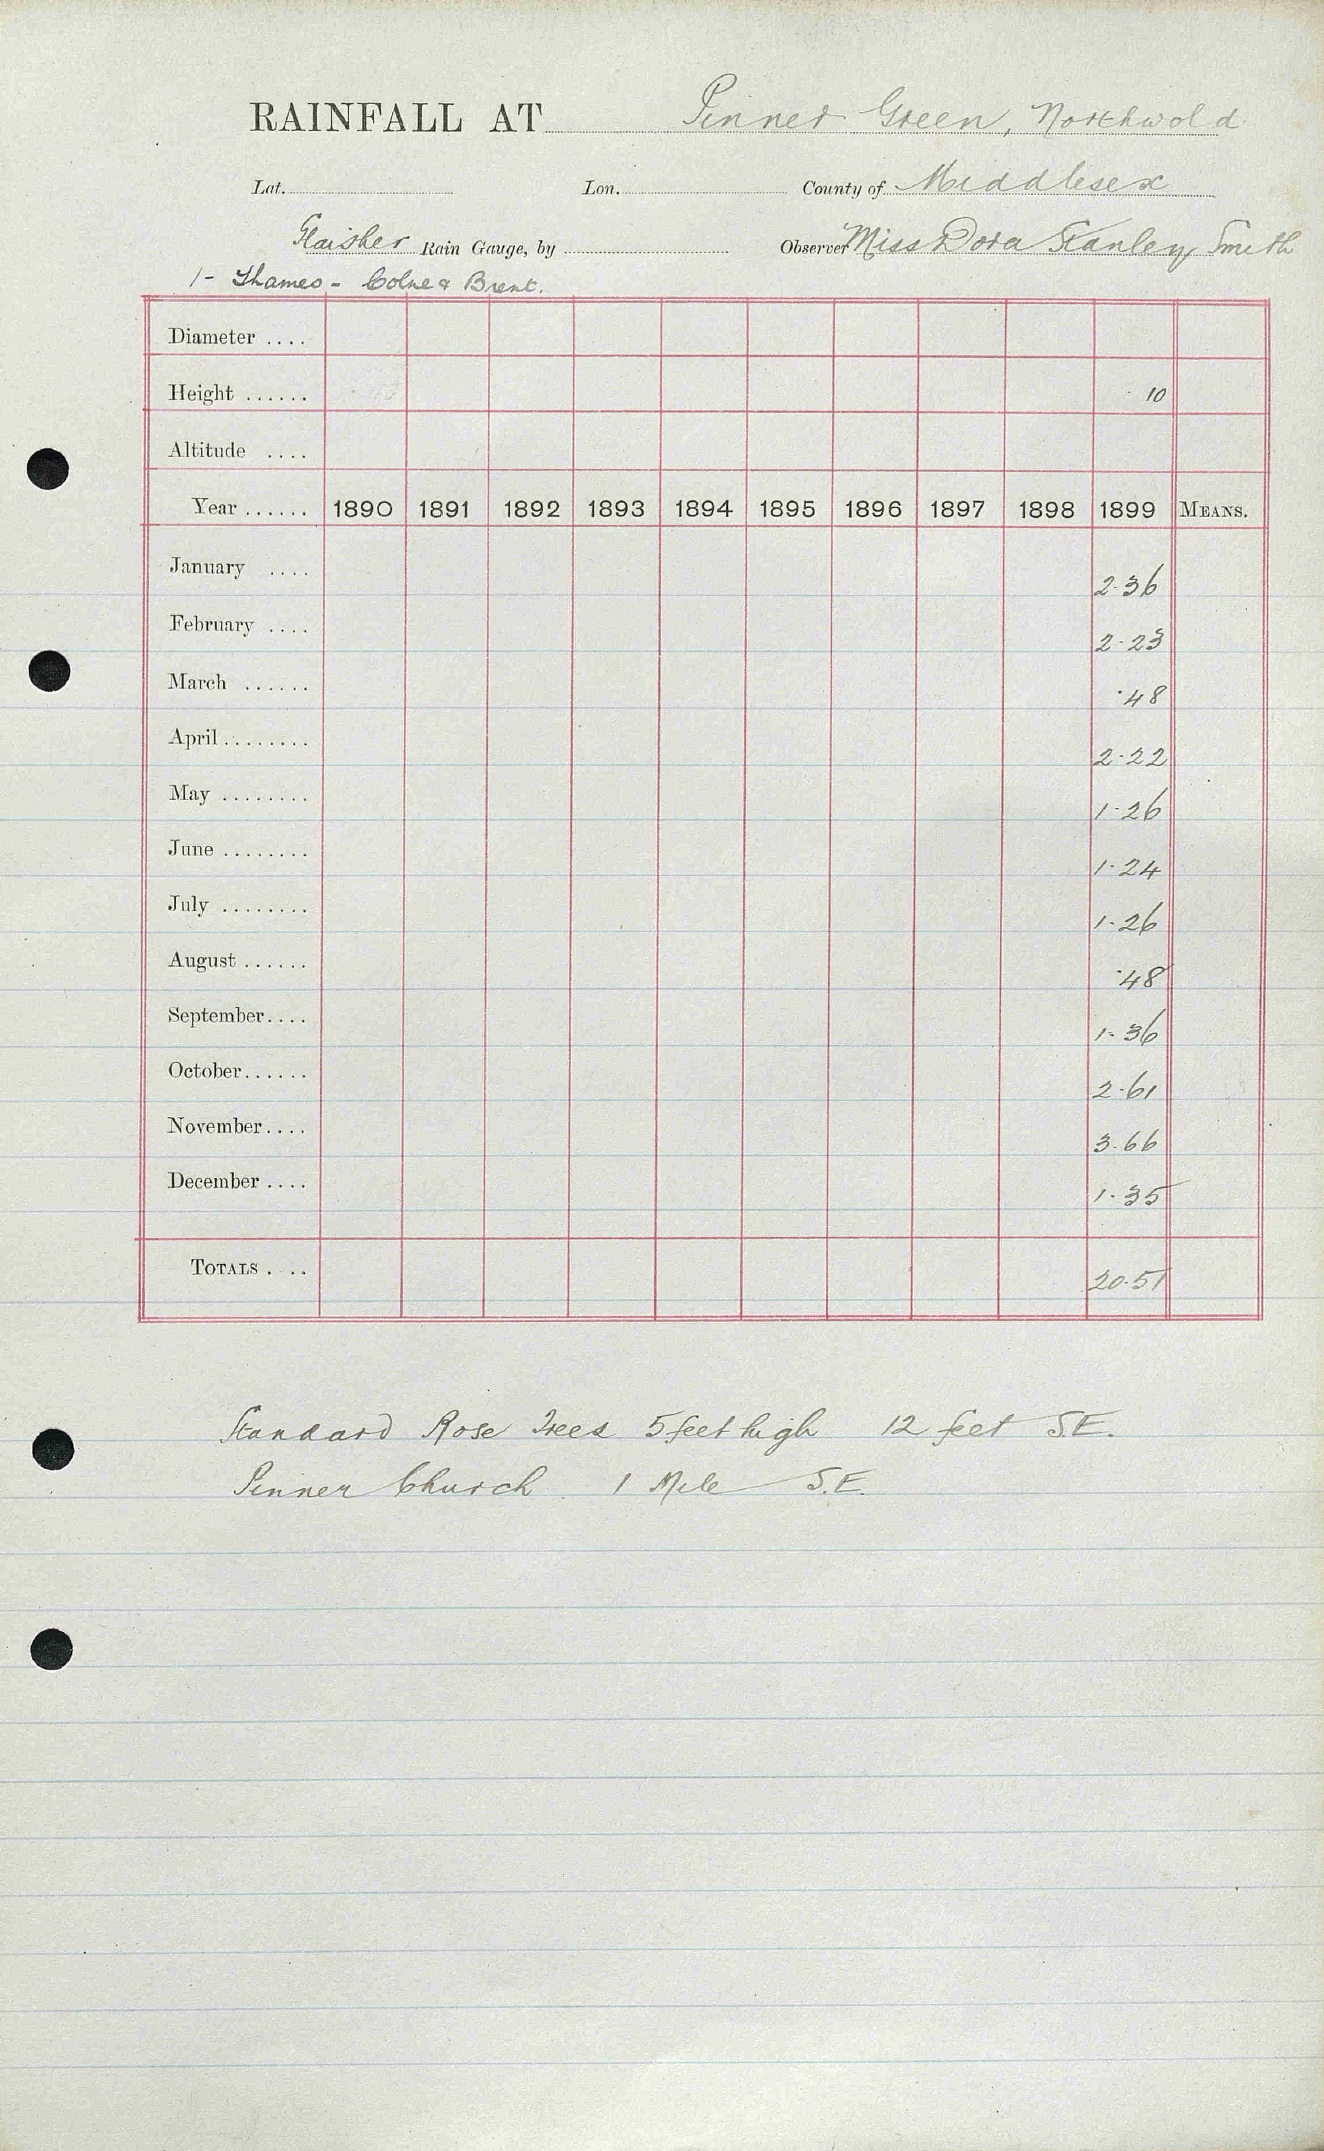 RAINFALL AT Pinner Green, Northwold
Lat. Lon. County of Middlesex
Glaisher Rain Gauge, by Observer Miss Dora Stanley Smith
1 - Thames - Colne & Brent.
Diameter ....
Height ...... 10
Altitude ....
Year ...... 1890 1891 1892 1893 1894 1895 1896 1897 1898 1899 MEANS.
January .... 2.36
February .... 2.23
March ...... .48
April ........ 2.22
May ........ 1.26
June ........ 1.24
July ........ 1.26
August ...... .48
September .... 1.36
October ...... 2.61
November .... 3.66
December .... 1.35
TOTALS .... 20.51
Standard Rose Trees 5 feet high 12 feet S.E.
Pinner Church 1 Mile S.E.